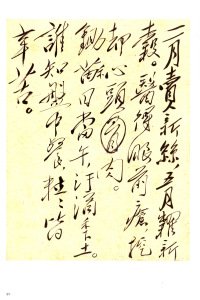 二月賣新絲，五月糶新
穀。醫得眼前瘡，挖
却心頭肉。
鋤苗日當午，汗滴禾土。
誰知盤中餐，粒々皆
辛苦。